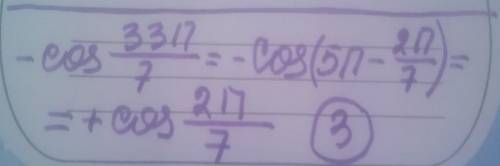 -cos 33π/7 = -cos(5π - 2π/7) =
= + cos 2π/7 ③